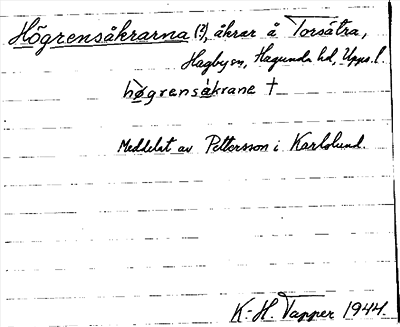 Högrensåkrarna (?), åkrar å Torsätra,
Hagby sn, Hagunda hd, Upps. l.
högrensåkrane †
Meddelat av Pettersson i Karlslund.
K.-H. Tapper 1944.